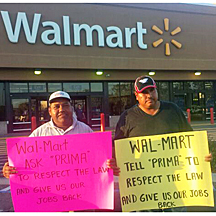 Walmart
WAL-MART
ASK "PRIMA"
TO RESPECT THE LAW
AND GIVE US OUR
JOBS BACK
WAL-MART
TELL "PRIMA" TO
RESPECT THE LAW
AND GIVE US OUR JOBS
BACK